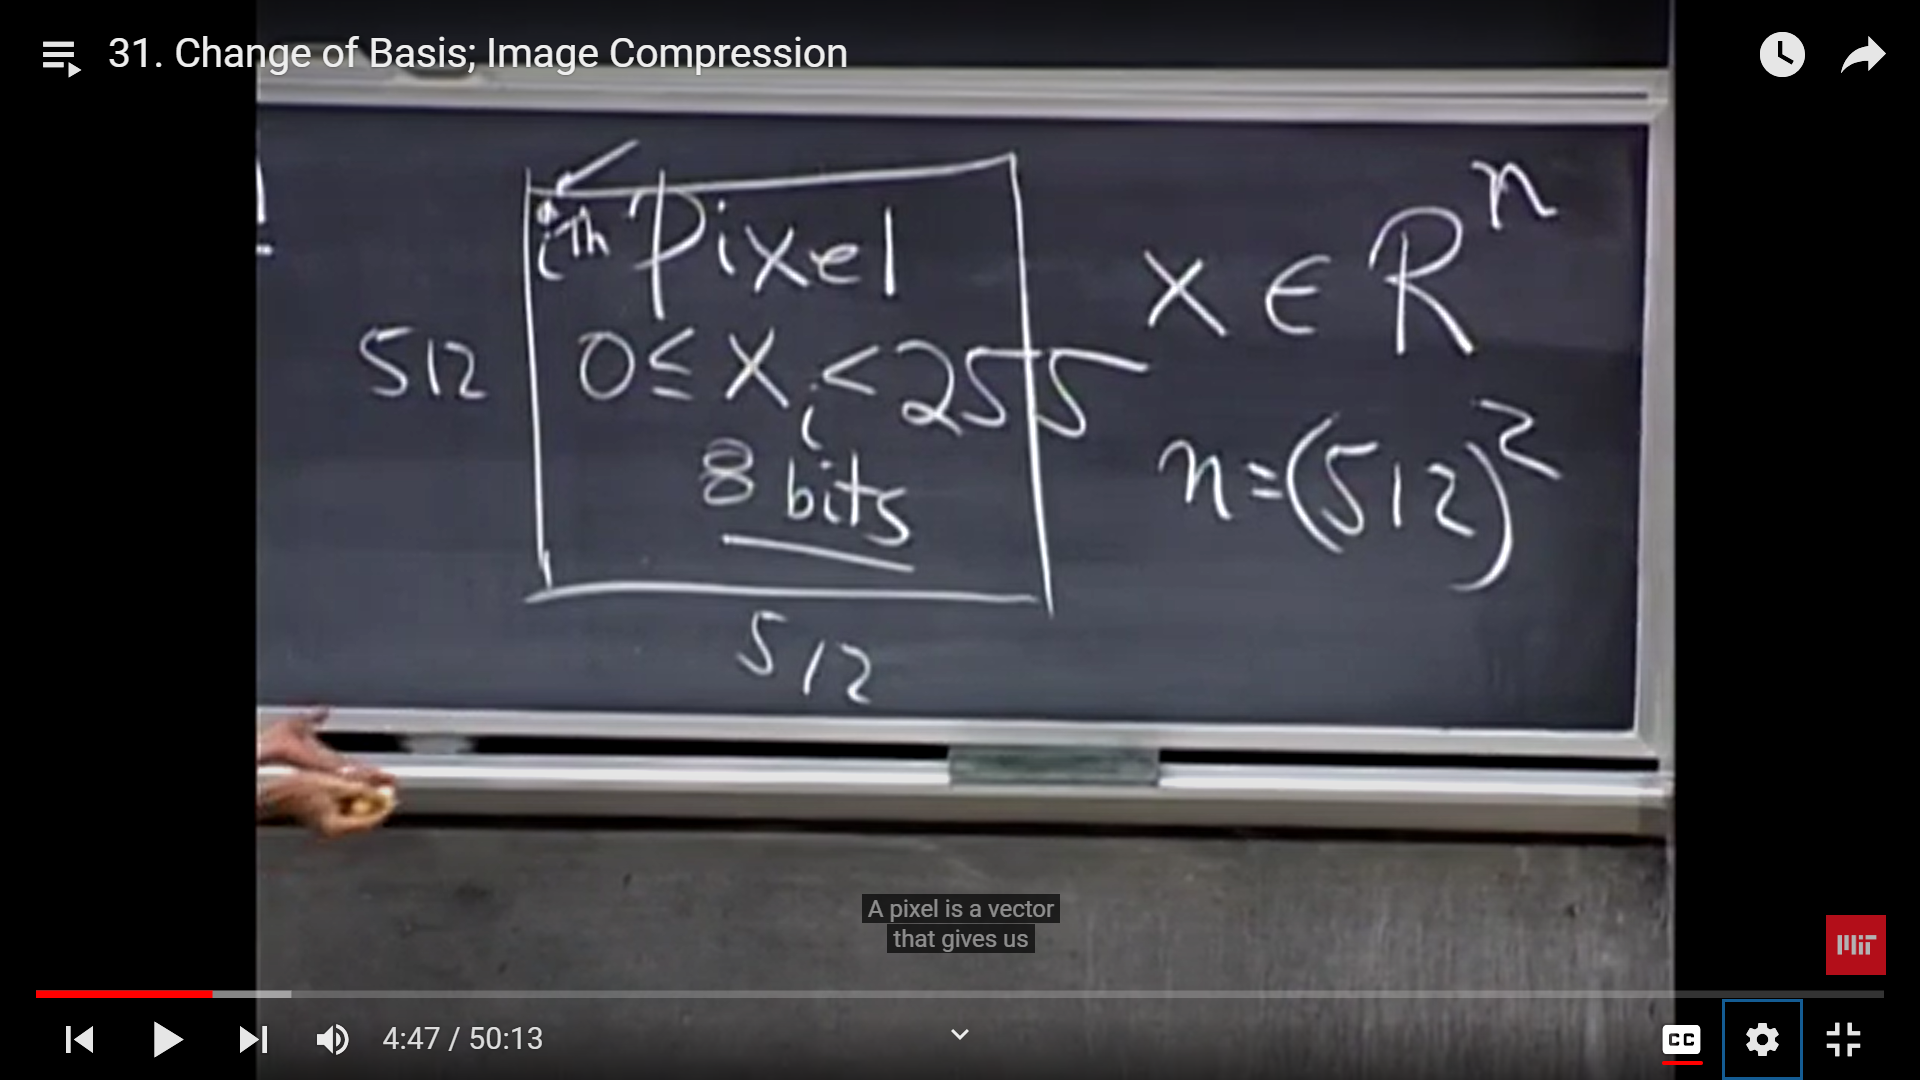 31. Change of Basis; Image Compression
ith Pixel
0 ≤ x_i < 255
8 bits
512
512
x ∈ R^n
n = (512)^2
A pixel is a vector
that gives us
MIT
4:47 / 50:13
CC